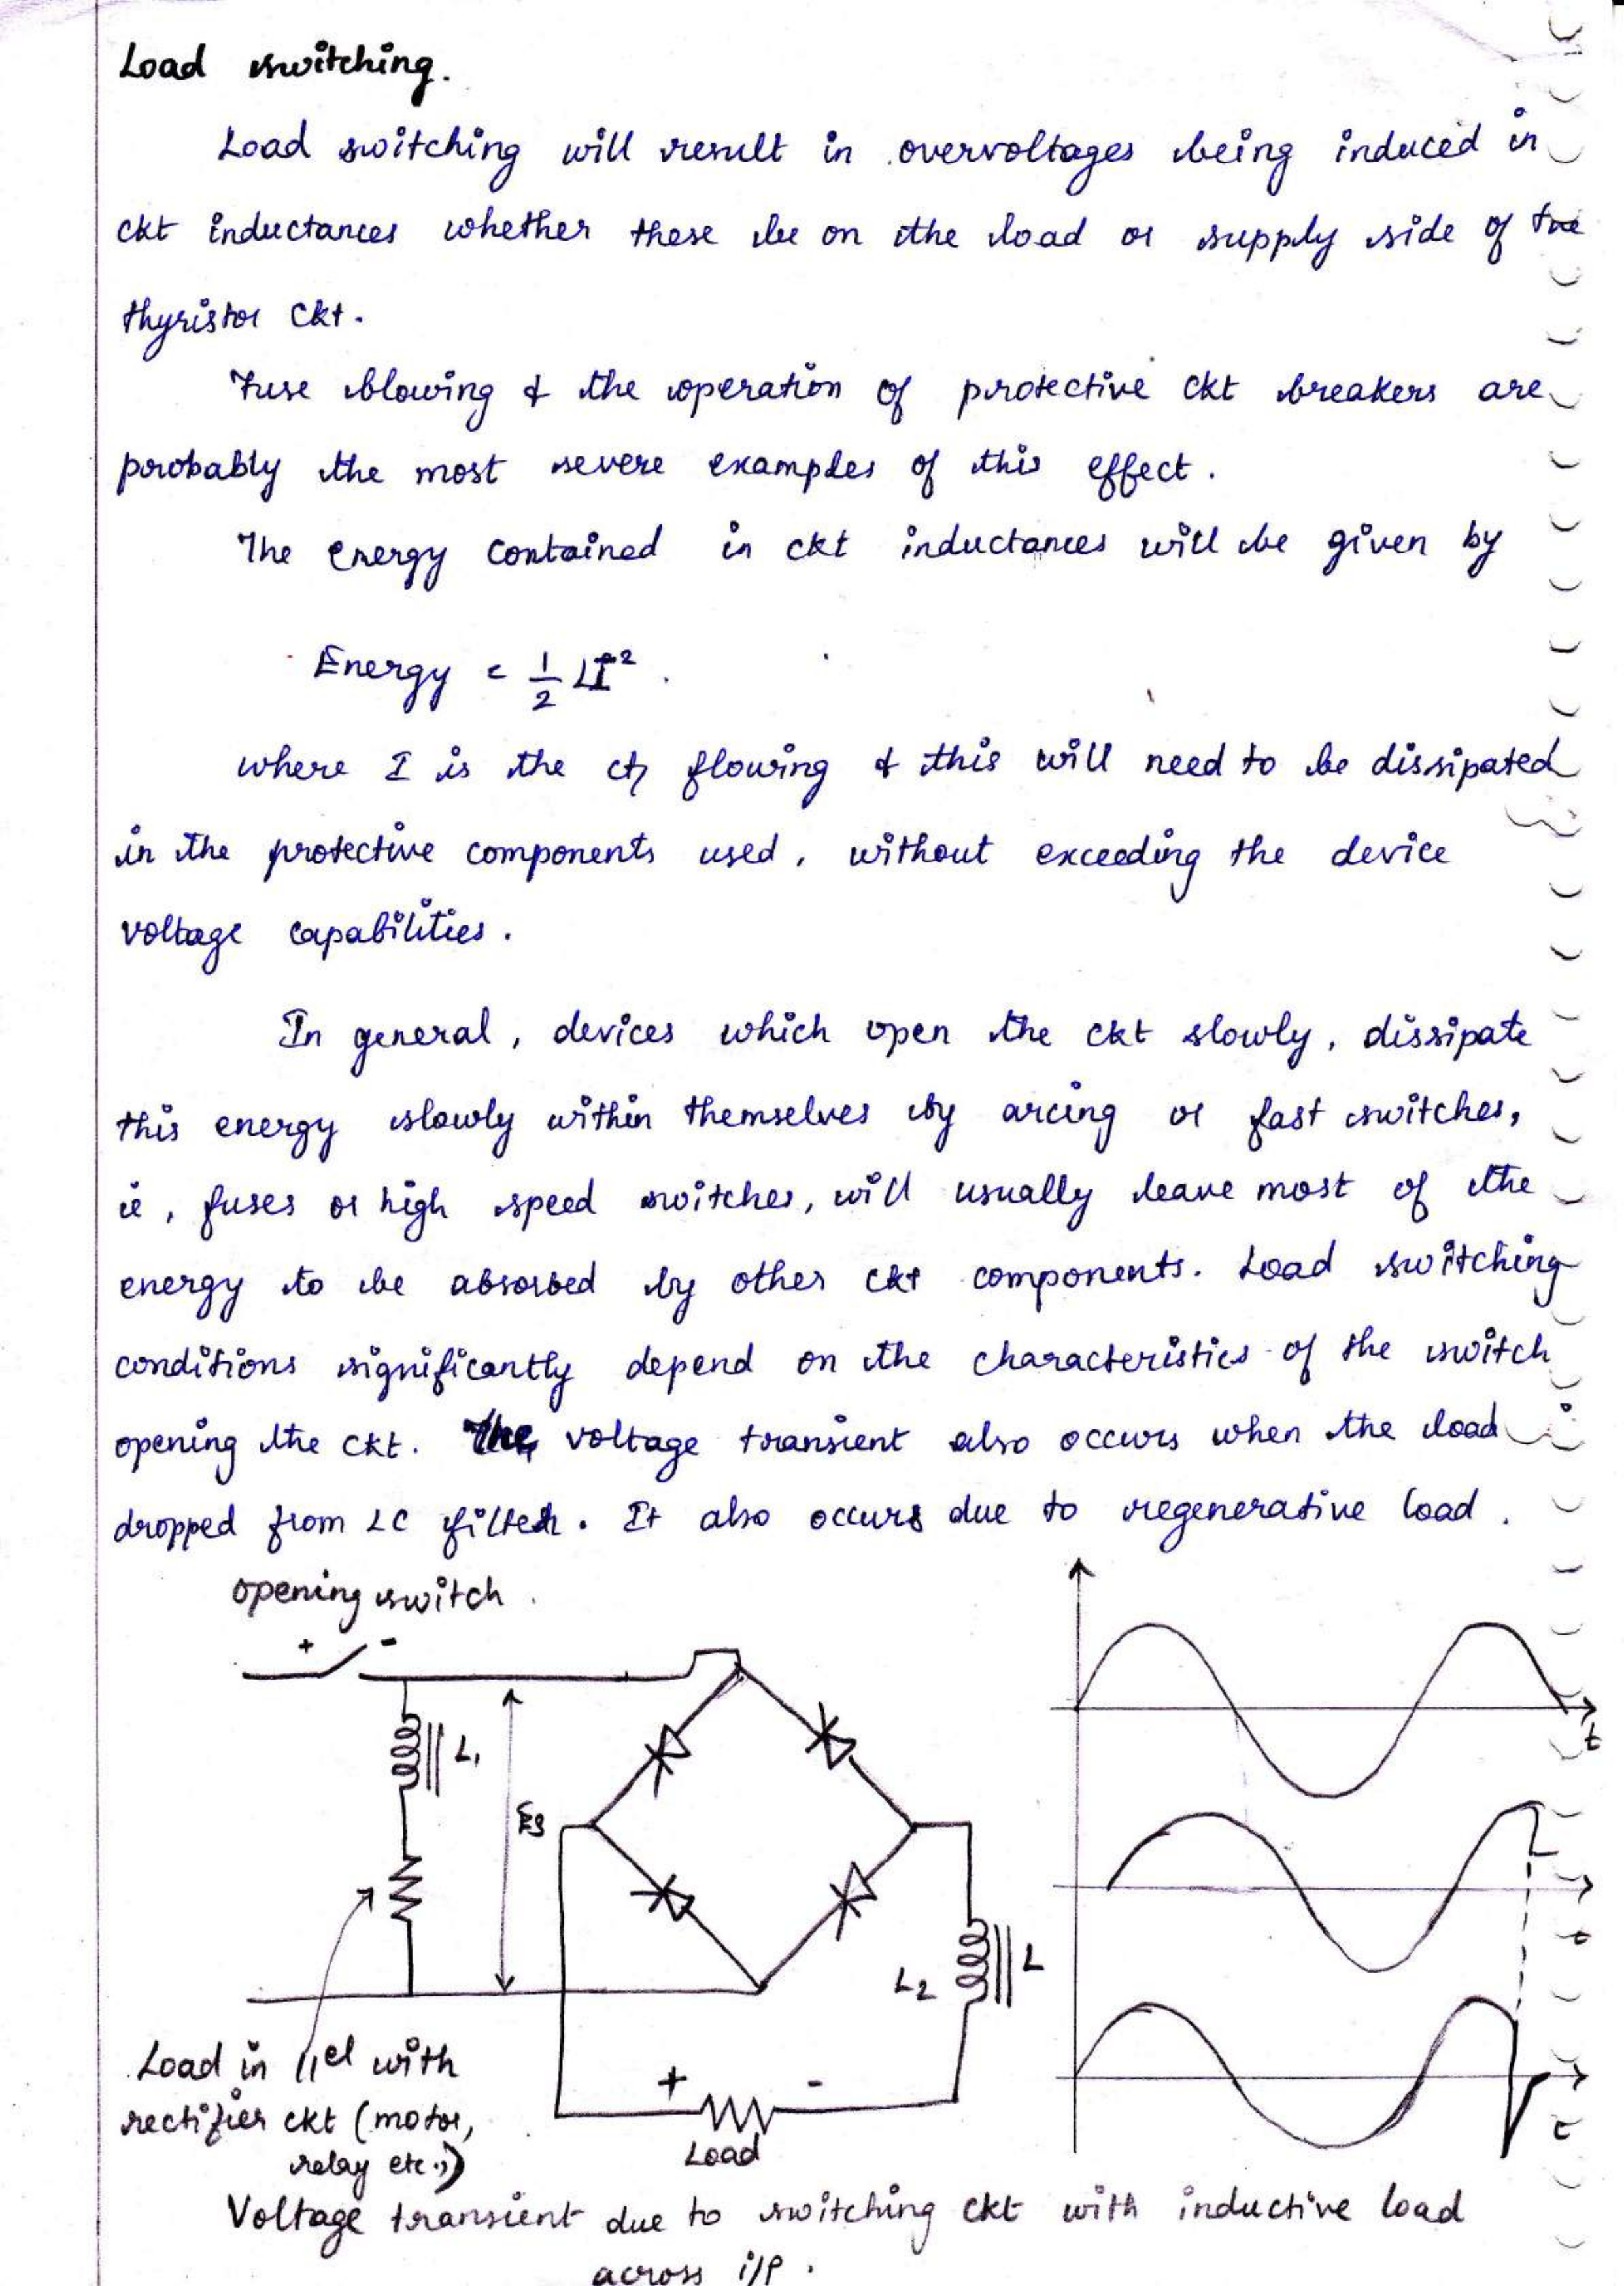 Load switching.
Load switching will result in overvoltages being induced in
ckt inductances whether these be on the load or supply side of the
thyristor ckt.
Fuse blowing & the operation of protective ckt breakers are
probably the most severe examples of this effect.
The energy contained in ckt inductances will be given by
Energy = 1/2 LI².
where I is the ct flowing & this will need to be dissipated
in the protective components used, without exceeding the device
voltage capabilities.
In general, devices which open the ckt slowly, dissipate
this energy slowly within themselves by arcing or fast switches,
ie, fuses or high speed switches, will usually leave most of the
energy to be absorbed by other ckt components. Load switching
conditions significantly depend on the characteristics of the switch
opening the ckt. The voltage transient also occurs when the load
dropped from LC filter. It also occurs due to regenerative load.
opening switch.
+ -
L1
Es
L2
L
Load in ||el with
rectifier ckt (motor,
relay etc.,)
+ -
Load
t
t
t
Voltage transient due to switching ckt with inductive load
across i/p.